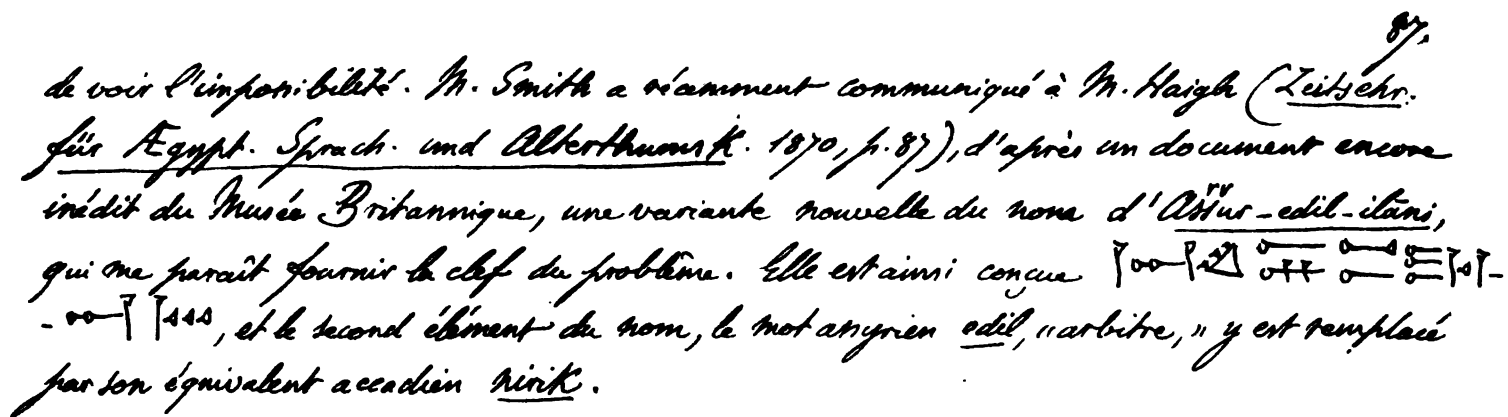 87.
de voir l'impossibilité. M. Smith a récemment communiqué à M. Haigh (Zeitschr.
für Ægypt. Sprach. und Alterthumsk. 1870, p. 87), d'après un document encore
inédit du Musée Britannique, une variante nouvelle du nom d'Aššur-edil-ilāni,
qui me paraît fournir la clef du problème. Elle est ainsi conçue
, et le second élément du nom, le mot assyrien edil, «arbitre,» y est remplacé
par son équivalent accadien nirik.